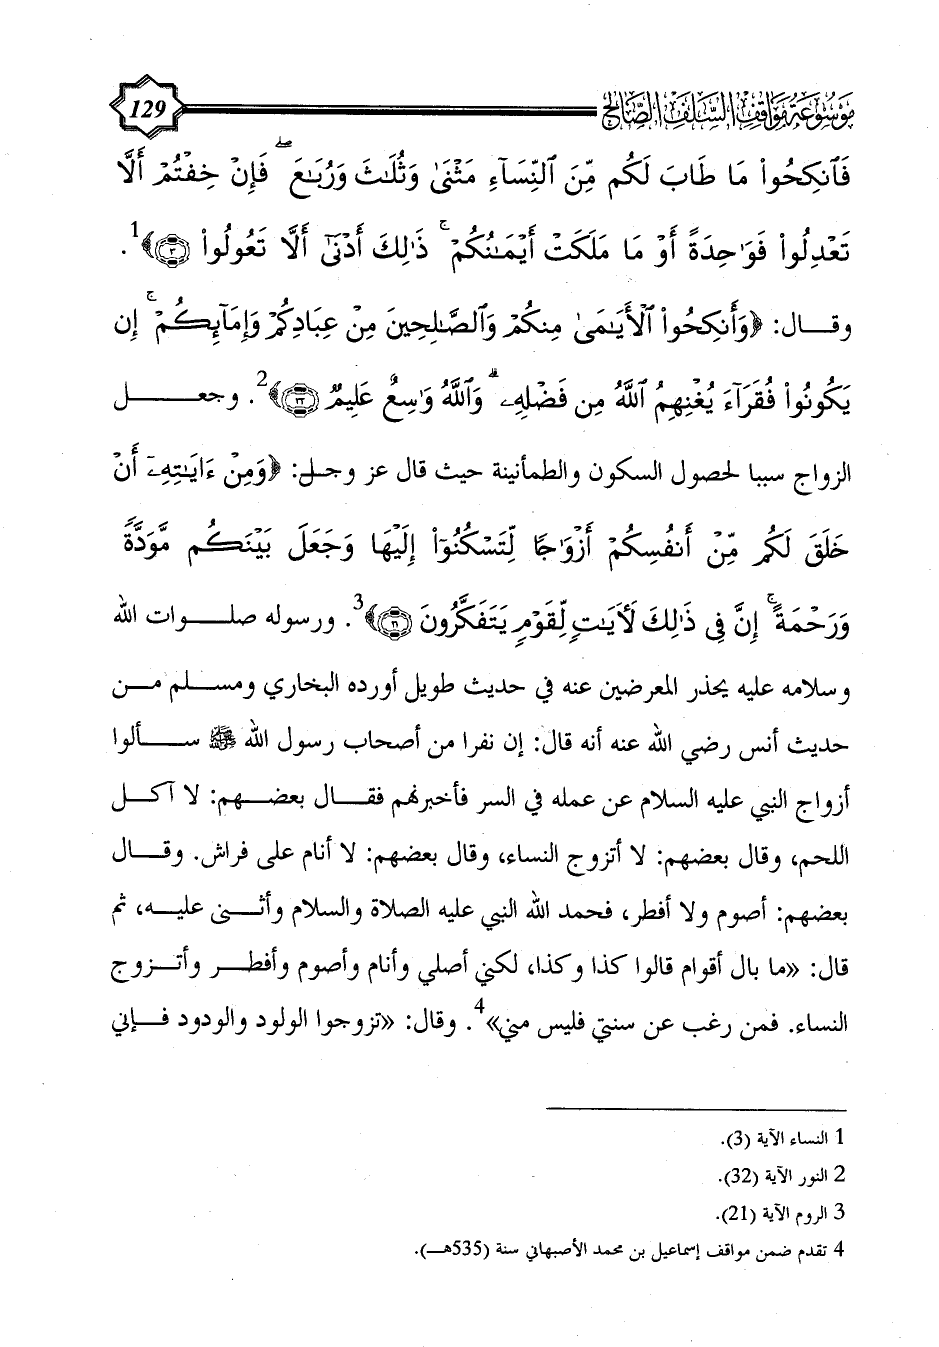 موسوعة مواقف السلف الصالح 129
فَٱنكِحُوا۟ مَا طَابَ لَكُم مِّنَ ٱلنِّسَآءِ مَثْنَىٰ وَثُلَٰثَ وَرُبَٰعَ ۖ فَإِنْ خِفْتُمْ أَلَّا
تَعْدِلُوا۟ فَوَٰحِدَةً أَوْ مَا مَلَكَتْ أَيْمَٰنُكُمْ ۚ ذَٰلِكَ أَدْنَىٰٓ أَلَّا تَعُولُوا۟ ﴿٣﴾﴾1.
وقـــال: ﴿وَأَنكِحُوا۟ ٱلْأَيَٰمَىٰ مِنكُمْ وَٱلصَّٰلِحِينَ مِنْ عِبَادِكُمْ وَإِمَآئِكُمْ ۚ إِن
يَكُونُوا۟ فُقَرَآءَ يُغْنِهِمُ ٱللَّهُ مِن فَضْلِهِۦ ۗ وَٱللَّهُ وَٰسِعٌ عَلِيمٌ ﴿٣٢﴾﴾2. وجعـــــل
الزواج سببا لحصول السكون والطمأنينة حيث قال عز وجل: ﴿وَمِنْ ءَايَٰتِهِۦٓ أَنْ
خَلَقَ لَكُم مِّنْ أَنفُسِكُمْ أَزْوَٰجًا لِّتَسْكُنُوٓا۟ إِلَيْهَا وَجَعَلَ بَيْنَكُم مَّوَدَّةً
وَرَحْمَةً ۚ إِنَّ فِى ذَٰلِكَ لَءَايَٰتٍ لِّقَوْمٍ يَتَفَكَّرُونَ ﴿٢١﴾﴾3. ورسوله صلـــوات الله
وسلامه عليه يحذر المعرضين عنه في حديث طويل أورده البخاري ومســلم مــن
حديث أنس رضي الله عنه أنه قال: إن نفرا من أصحاب رسول الله ﷺ ســـألوا
أزواج النبي عليه السلام عن عمله في السر فأخبرنهم فقـــال بعضـــهم: لا آكـــل
اللحم، وقال بعضهم: لا أتزوج النساء، وقال بعضهم: لا أنام على فراش. وقـــال
بعضهم: أصوم ولا أفطر، فحمد الله النبي عليه الصلاة والسلام وأثـــنى عليـــه، ثم
قال: «ما بال أقوام قالوا كذا وكذا، لكني أصلي وأنام وأصوم وأفطـــر وأتـــزوج
النساء. فمن رغب عن سنتي فليس مني»4. وقال: «تزوجوا الولود والودود فـــإني
1 النساء الآية (3).
2 النور الآية (32).
3 الروم الآية (21).
4 تقدم ضمن مواقف إسماعيل بن محمد الأصبهاني سنة (535هـــ).